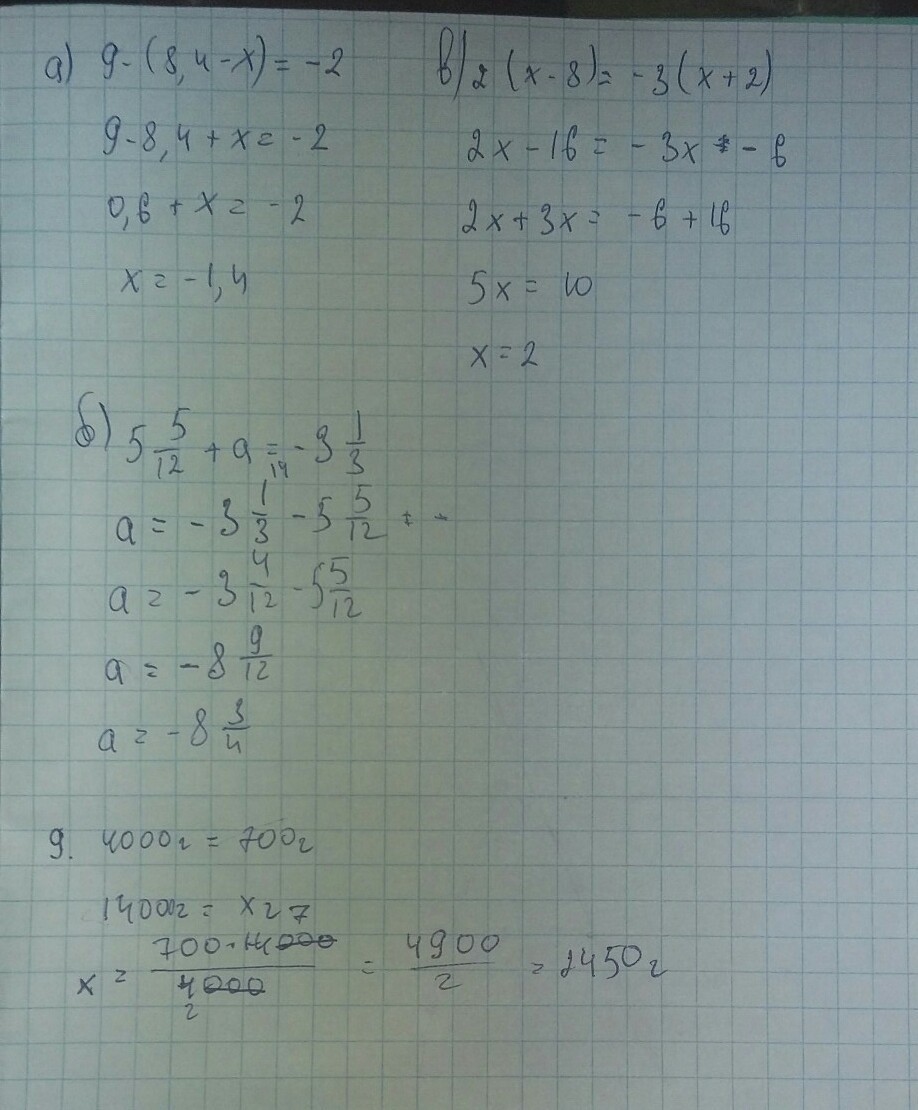 а) 9-(8,4-x)= -2
9-8,4+x= -2
0,6 + x = -2
x = -1,4
в) 2(x-8)= -3(x+2)
2x-16 = -3x - 6
2x+3x = -6+16
5x = 10
x = 2
б) 5 5/12 + a = -3 1/3
a = -3 1/3 - 5 5/12
a = -3 4/12 - 5 5/12
a = -8 9/12
a = -8 3/4
9. 4000г = 700г
1400г = xг
x = 700·14000/4000 = 4900/2 = 2450г